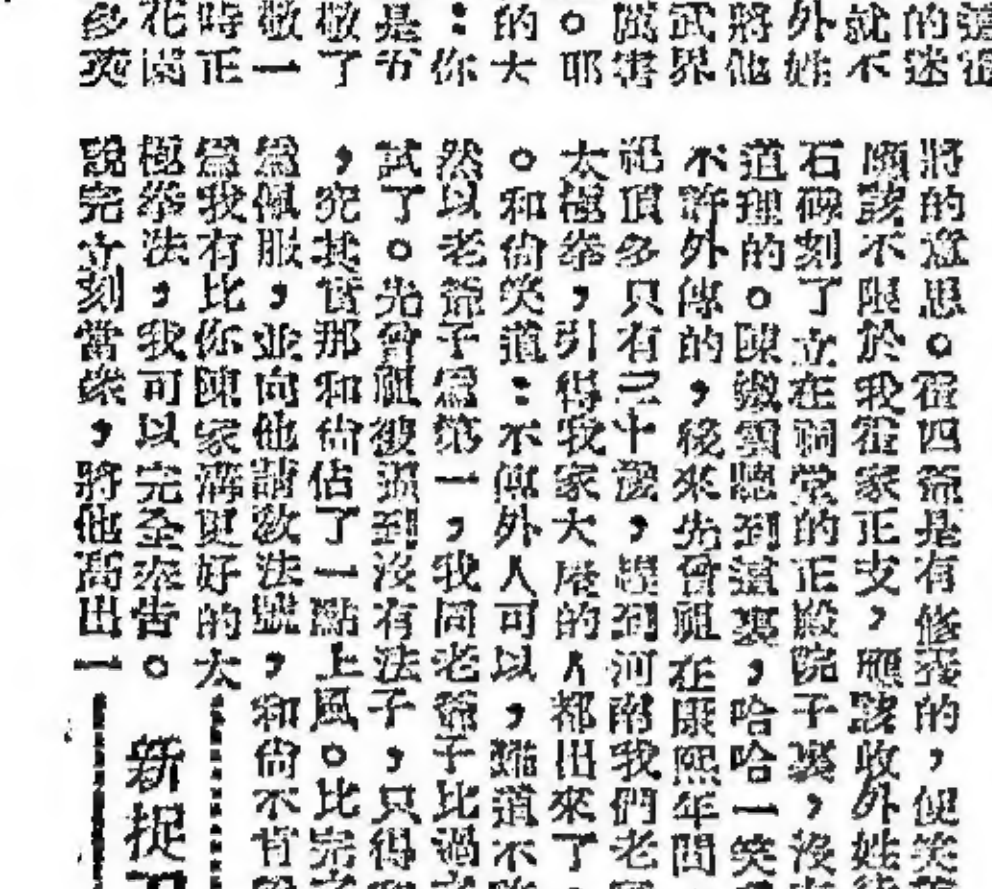 的迷
就不
外姓
將他
武界
。耶
的大
：你
敬了
敬一
時正
花園
將的意思。霍四爺是有修養的，便笑
願該不限於我霍家正支，應該收外姓
石碑刻了立在祠堂的正殿院子裏，沒
道理的。陳幾雲聽到這裏，哈哈一笑
不許外傳的，後來先曾祖在康熙年間
祀頂多只有三十歲，趕到河南我們老
太極拳，引得我家大房的人都出來了
。和尚笑道：不傳外人可以，難道不
然以老爺子爲第一，我同老爺子比過
試了。先曾祖被逼到沒有法子，只得
，究其實那和尚佔了一點上風。比完
爲佩服，並向他請敎法號，和尚不肯
爲我有比你陳家溝更好的太
極拳法，我可以完全奉告。
說完立刻當眾，將他高出一
新捉